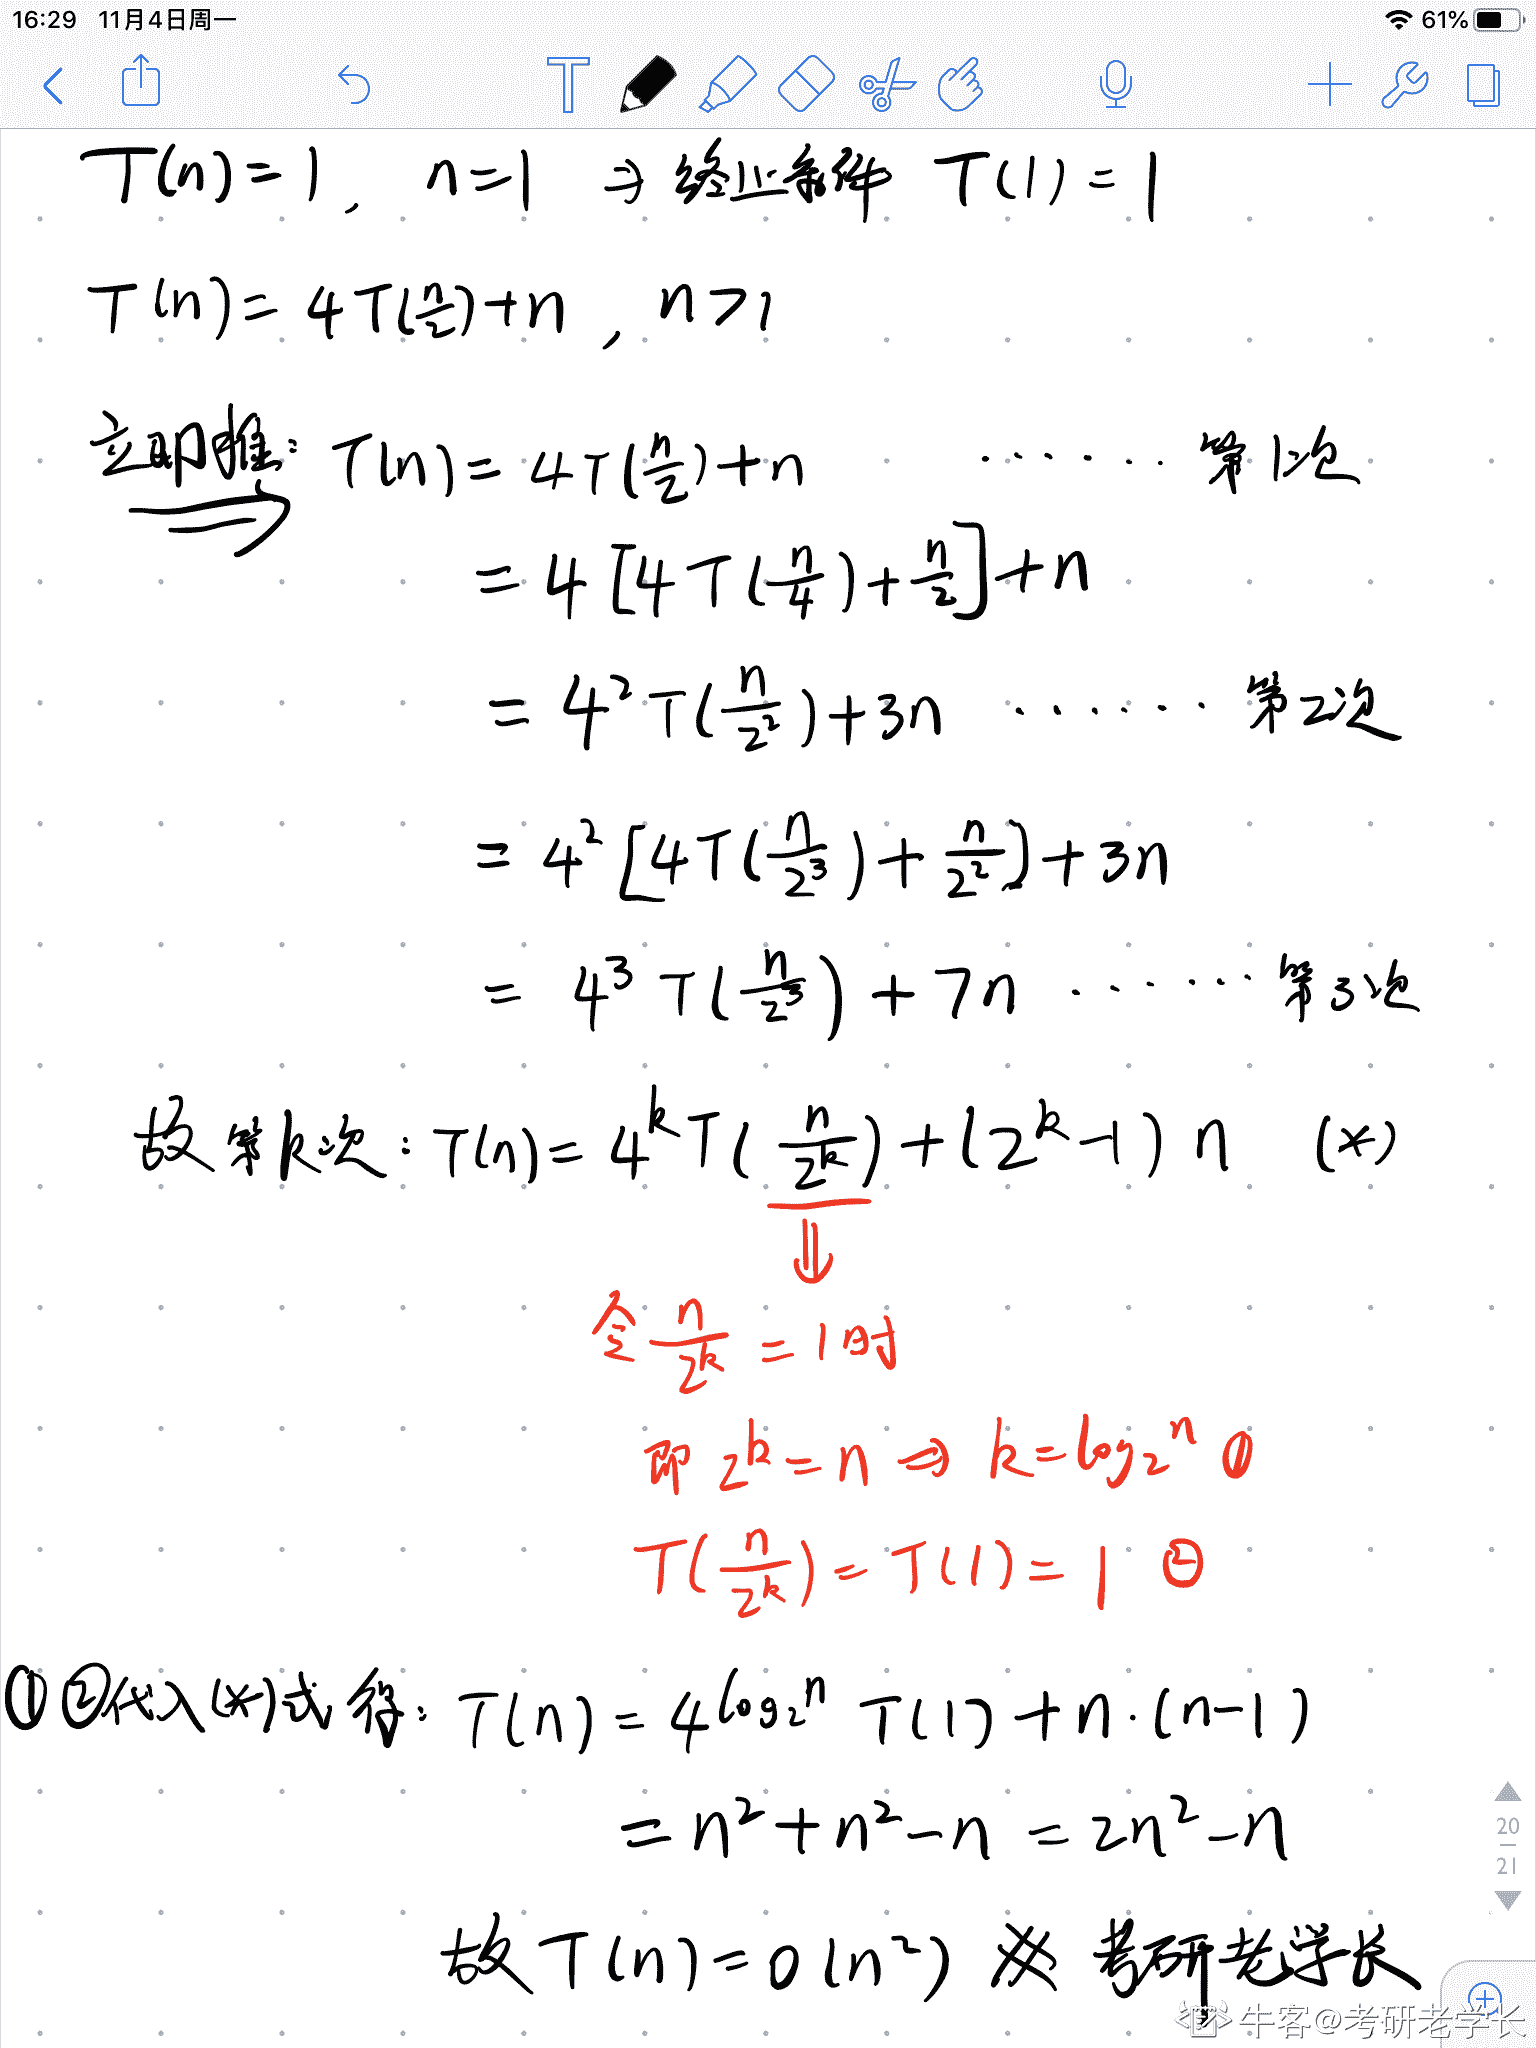 16:29 11月4日周一 61%
T(n)=1, n=1 ⇒ 终止条件 T(1)=1
T(n)=4T(n/2)+n, n>1
立即推: T(n)=4T(n/2)+n ······ 第1次
=4[4T(n/4)+n/2]+n
=4²T(n/2²)+3n ······ 第2次
=4²[4T(n/2³)+n/2²]+3n
=4³T(n/2³)+7n ······ 第3次
故第k次: T(n)=4^k T(n/2^k)+(2^k-1)n (*)
⇓
令 n/2^k =1时
即 2^k=n ⇒ k=log₂n ①
T(n/2^k)=T(1)=1 ②
①②代入(*)式得: T(n)=4^(log₂n) T(1)+n·(n-1)
=n²+n²-n=2n²-n
20
21
故T(n)=O(n²) 考研老学长
牛客@考研老学长